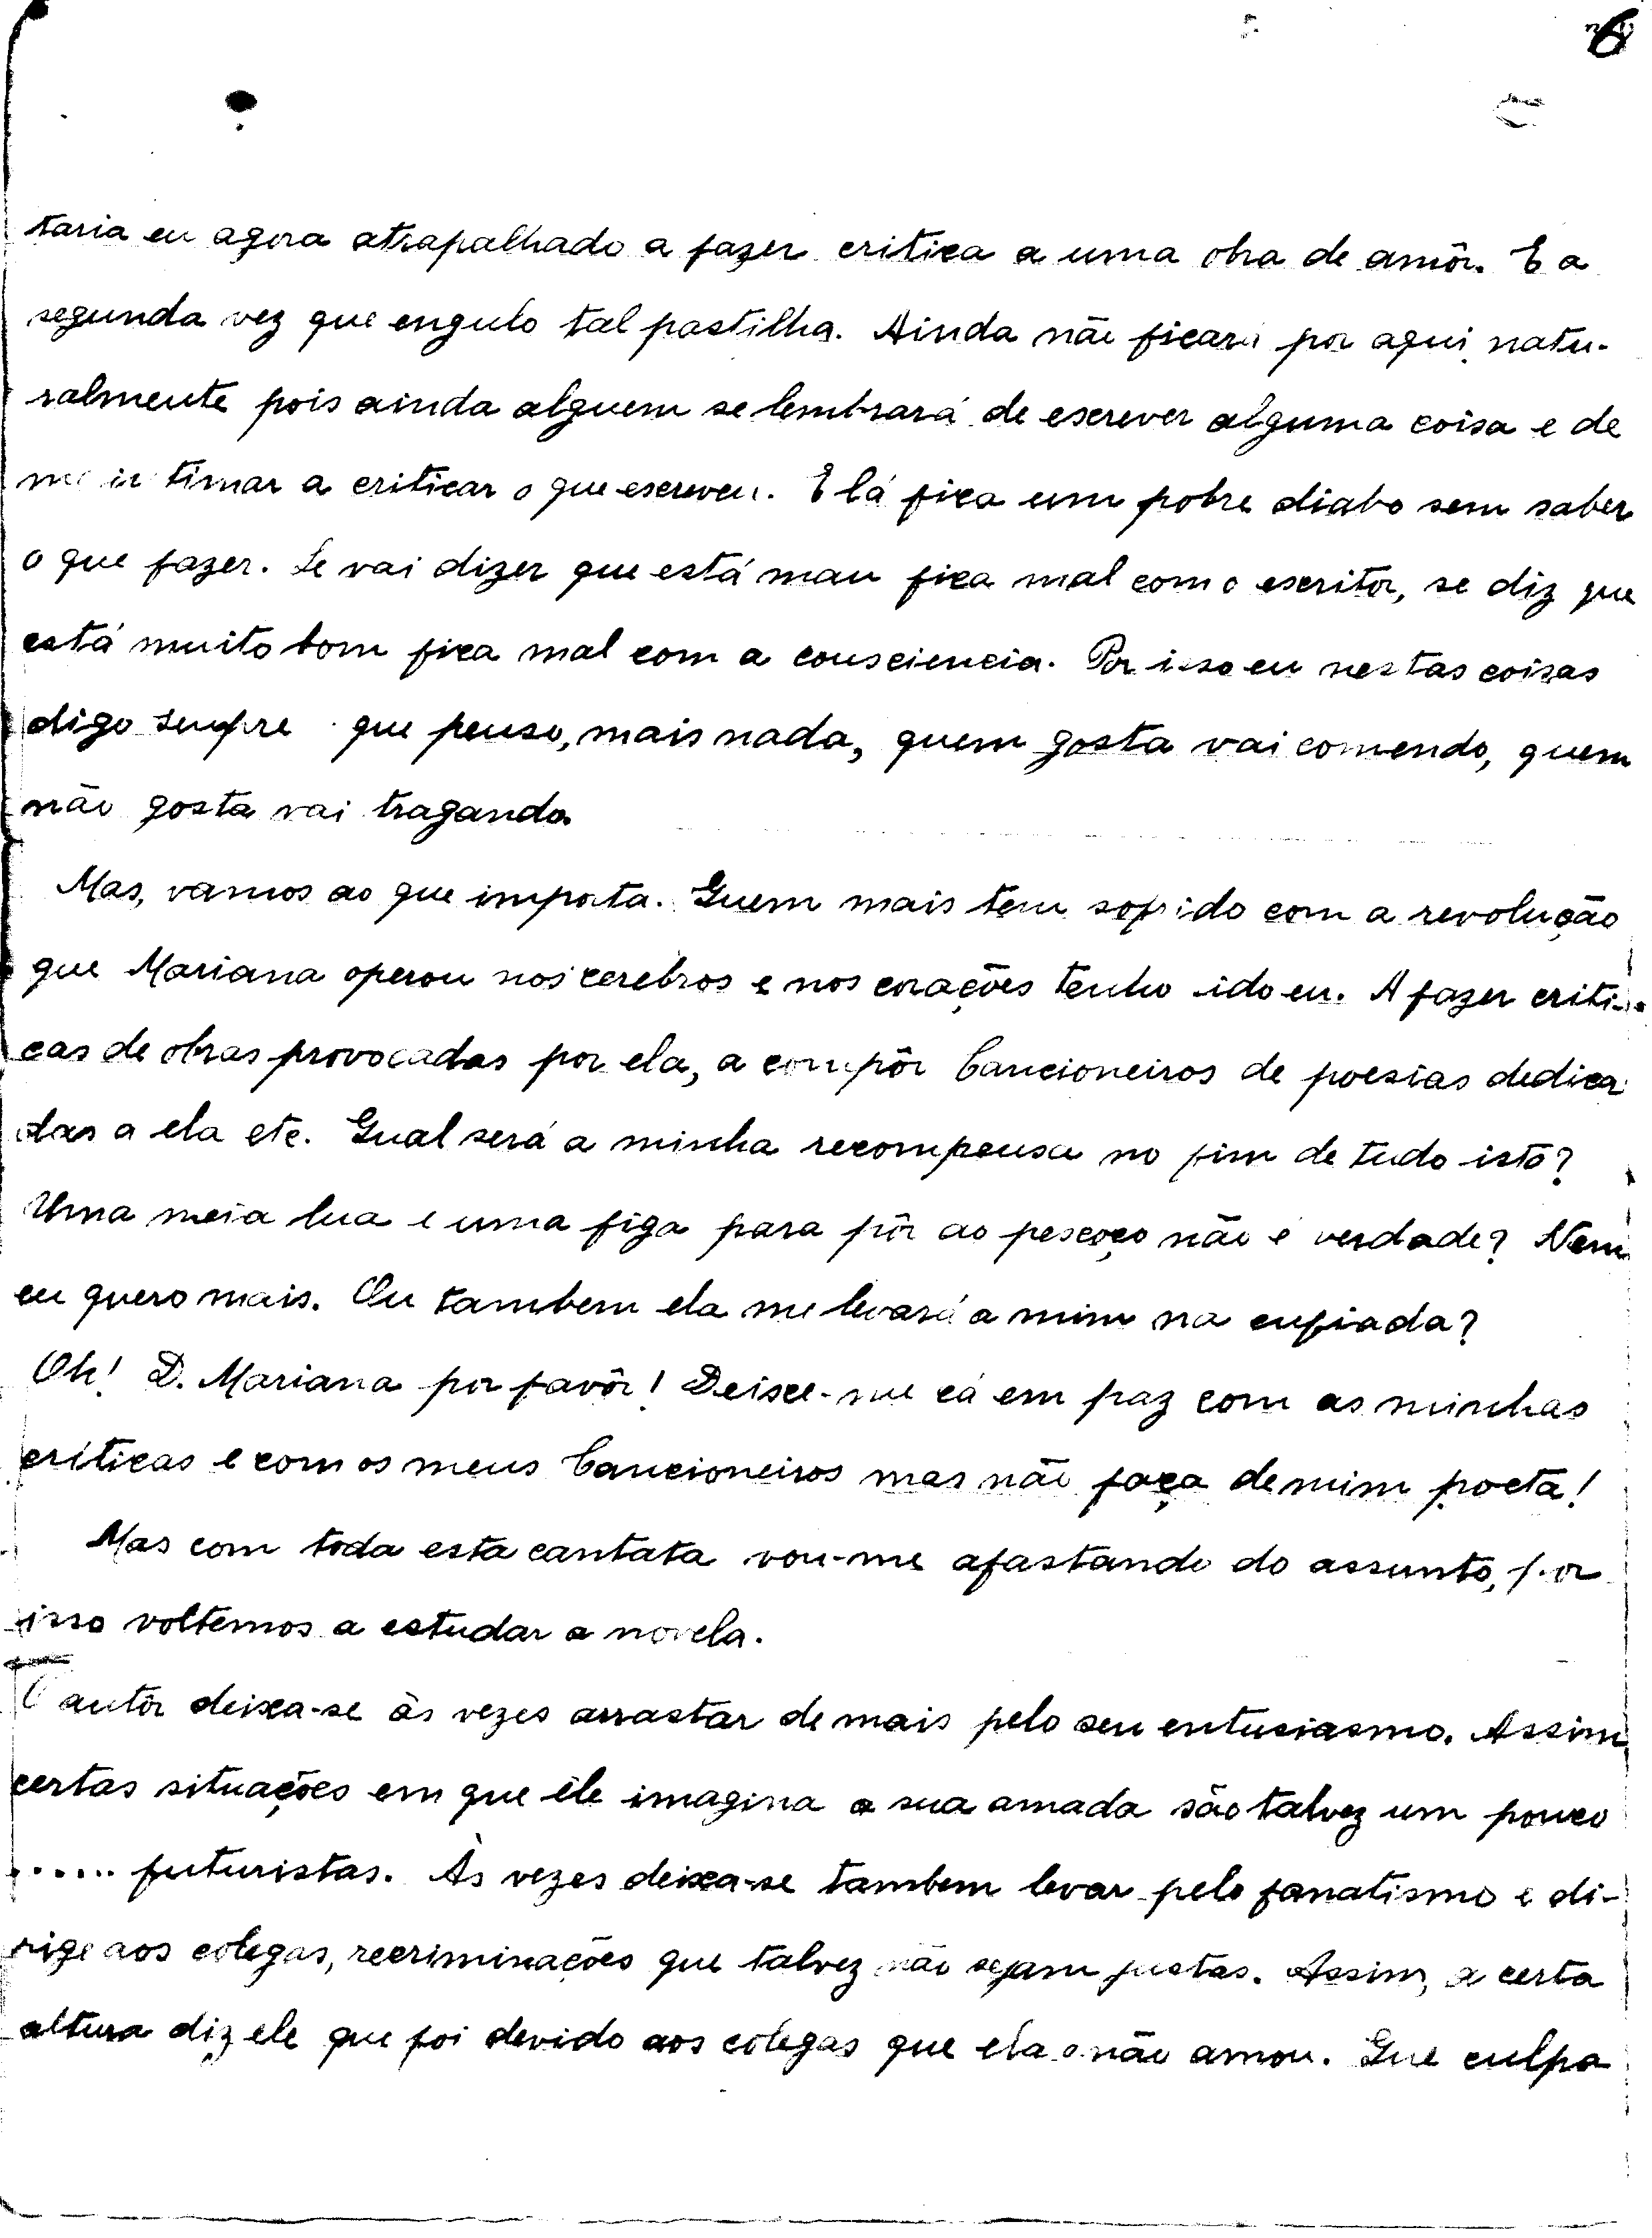 6
taria eu agora atrapalhado a fazer critica a uma obra de amôr. E a
segunda vez que engulo tal pastilha. Ainda não ficará por aqui natu-
ralmente pois ainda alguem se lembrará de escrever alguma coisa e de
me intimar a criticar o que escreveu. E lá fica um pobre diabo sem saber
o que fazer. Se vai dizer que está mau fica mal com o escritor, se diz que
está muito bom fica mal com a consciencia. Por isso eu nestas coisas
digo sempre que penso, mais nada, quem gosta vai comendo, quem
não gosta vai tragando.
Mas, vamos ao que importa. Quem mais tem sofrido com a revolução
que Mariana operou nos cerebros e nos corações tenho ido eu. A fazer criti-
cas de obras provocadas por ela, a compôr Cancioneiros de poesias dedica
das a ela etc. Qual será a minha recompensa no fim de tudo isto?
Uma meia lua e uma figa para pôr ao pescoço não é verdade? Nem
eu quero mais. Ou tambem ela me levará a mim na enfiada?
Oh! D. Mariana por favôr! Deixe-me cá em paz com as minhas
criticas e com os meus Cancioneiros mas não faça de mim poeta!
Mas com toda esta cantata vou-me afastando do assunto, por
isso voltemos a estudar a novela.
O autôr deixa-se às vezes arrastar de mais pelo seu entusiasmo. Assim
certas situações em que êle imagina a sua amada são talvez um pouco
...... futuristas. Às vezes deixa-se tambem levar pelo fanatismo e di-
rige aos colegas, recriminações que talvez não sejam justas. Assim, a certa
altura diz ele que foi devido aos colegas que ela o não amou. Que culpa